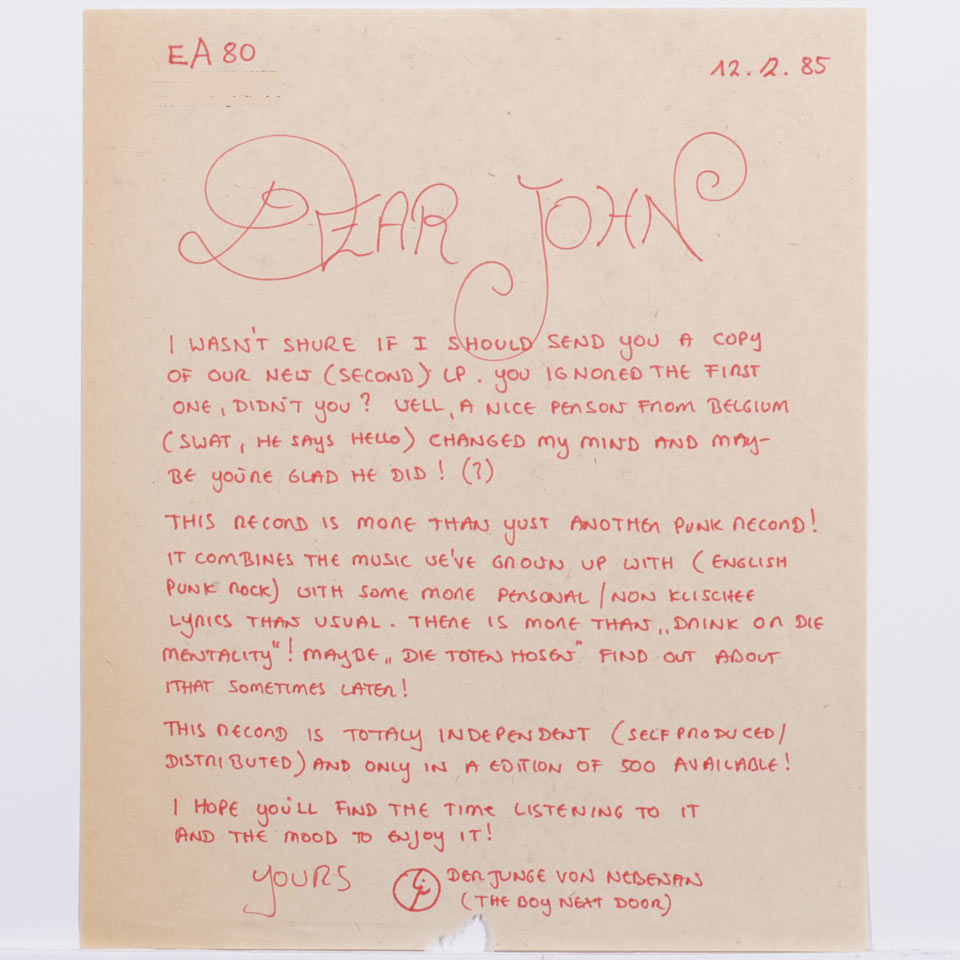 EA 80
12.2.85
DEAR JOHN
I WASN'T SHURE IF I SHOULD SEND YOU A COPY
OF OUR NEW (SECOND) LP. YOU IGNORED THE FIRST
ONE, DIDN'T YOU? WELL, A NICE PERSON FROM BELGIUM
(SWAT, HE SAYS HELLO) CHANGED MY MIND AND MAY-
BE YOU'RE GLAD HE DID! (?)
THIS RECORD IS MORE THAN YUST ANOTHER PUNK RECORD!
IT COMBINES THE MUSIC WE'VE GROWN UP WITH (ENGLISH
PUNK ROCK) WITH SOME MORE PERSONAL/NON KLISCHEE
LYRICS THAN USUAL. THERE IS MORE THAN „DRINK OR DIE
MENTALITY"! MAYBE „DIE TOTEN HOSEN" FIND OUT ABOUT
THAT SOMETIMES LATER!
THIS RECORD IS TOTALY INDEPENDENT (SELFPRODUCED/
DISTRIBUTED) AND ONLY IN A EDITION OF 500 AVAILABLE!
I HOPE YOU'LL FIND THE TIME LISTENING TO IT
AND THE MOOD TO ENJOY IT!
YOURS DER JUNGE VON NEBENAN
(THE BOY NEXT DOOR)